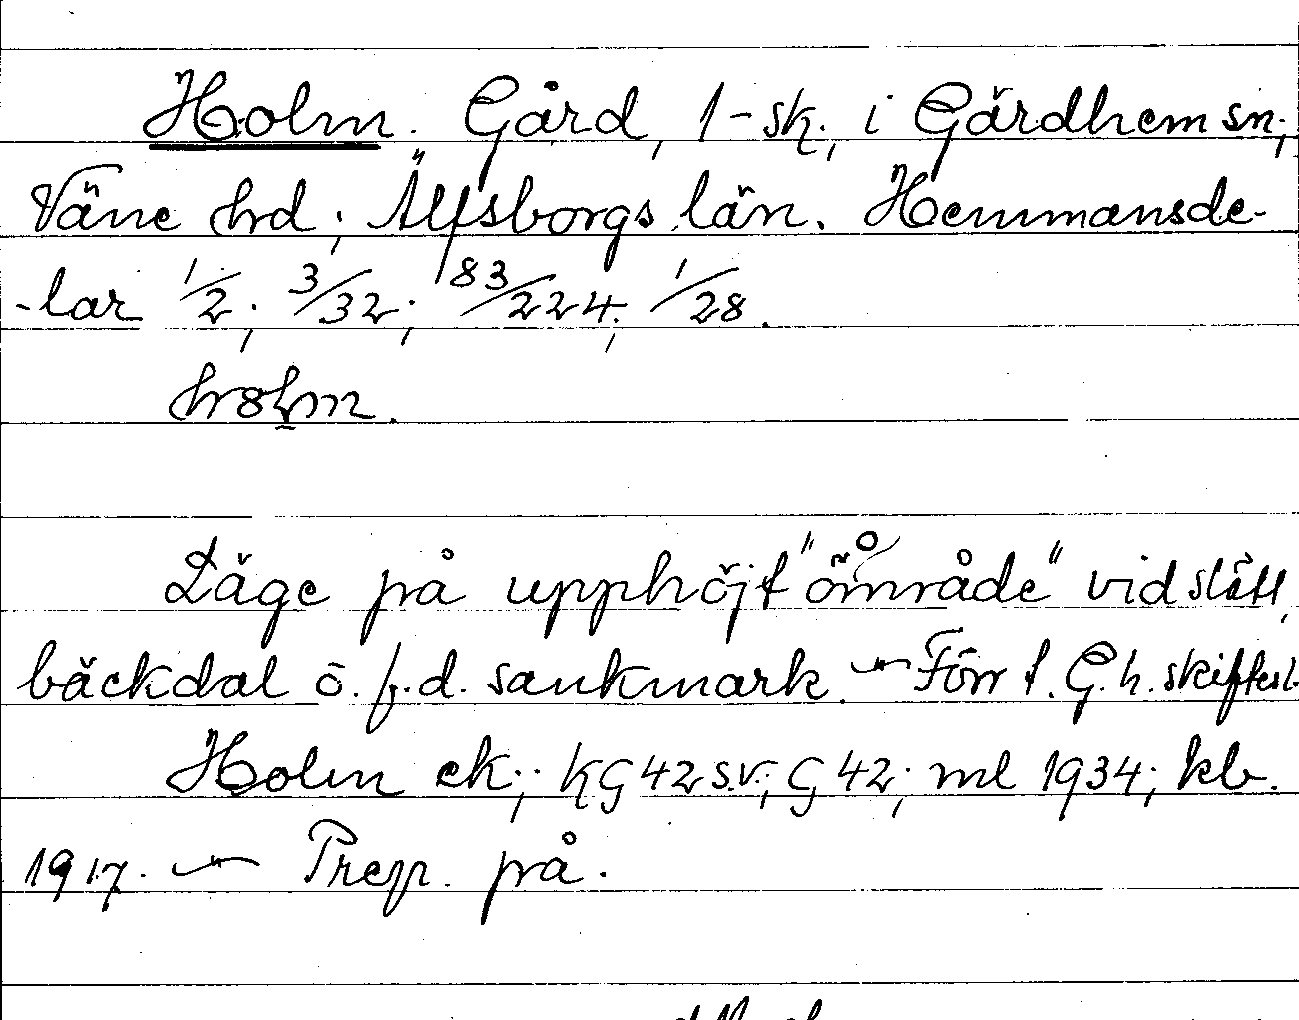 Holm. Gård, 1-sk., i Gärdhem sn;
Väne hrd; Älfsborgs län. Hemmansde-
-lar 1/2; 3/32; 83/224; 1/28.
hrolm.
Läge på upphöjt "område" vid slätt,
bäckdal o. f.d. sankmark. – Förr f. G. h. skiftesl.
Holm ek; KG 42 s.v; G 42; ml 1934; kb.
1917. – Prep. på.